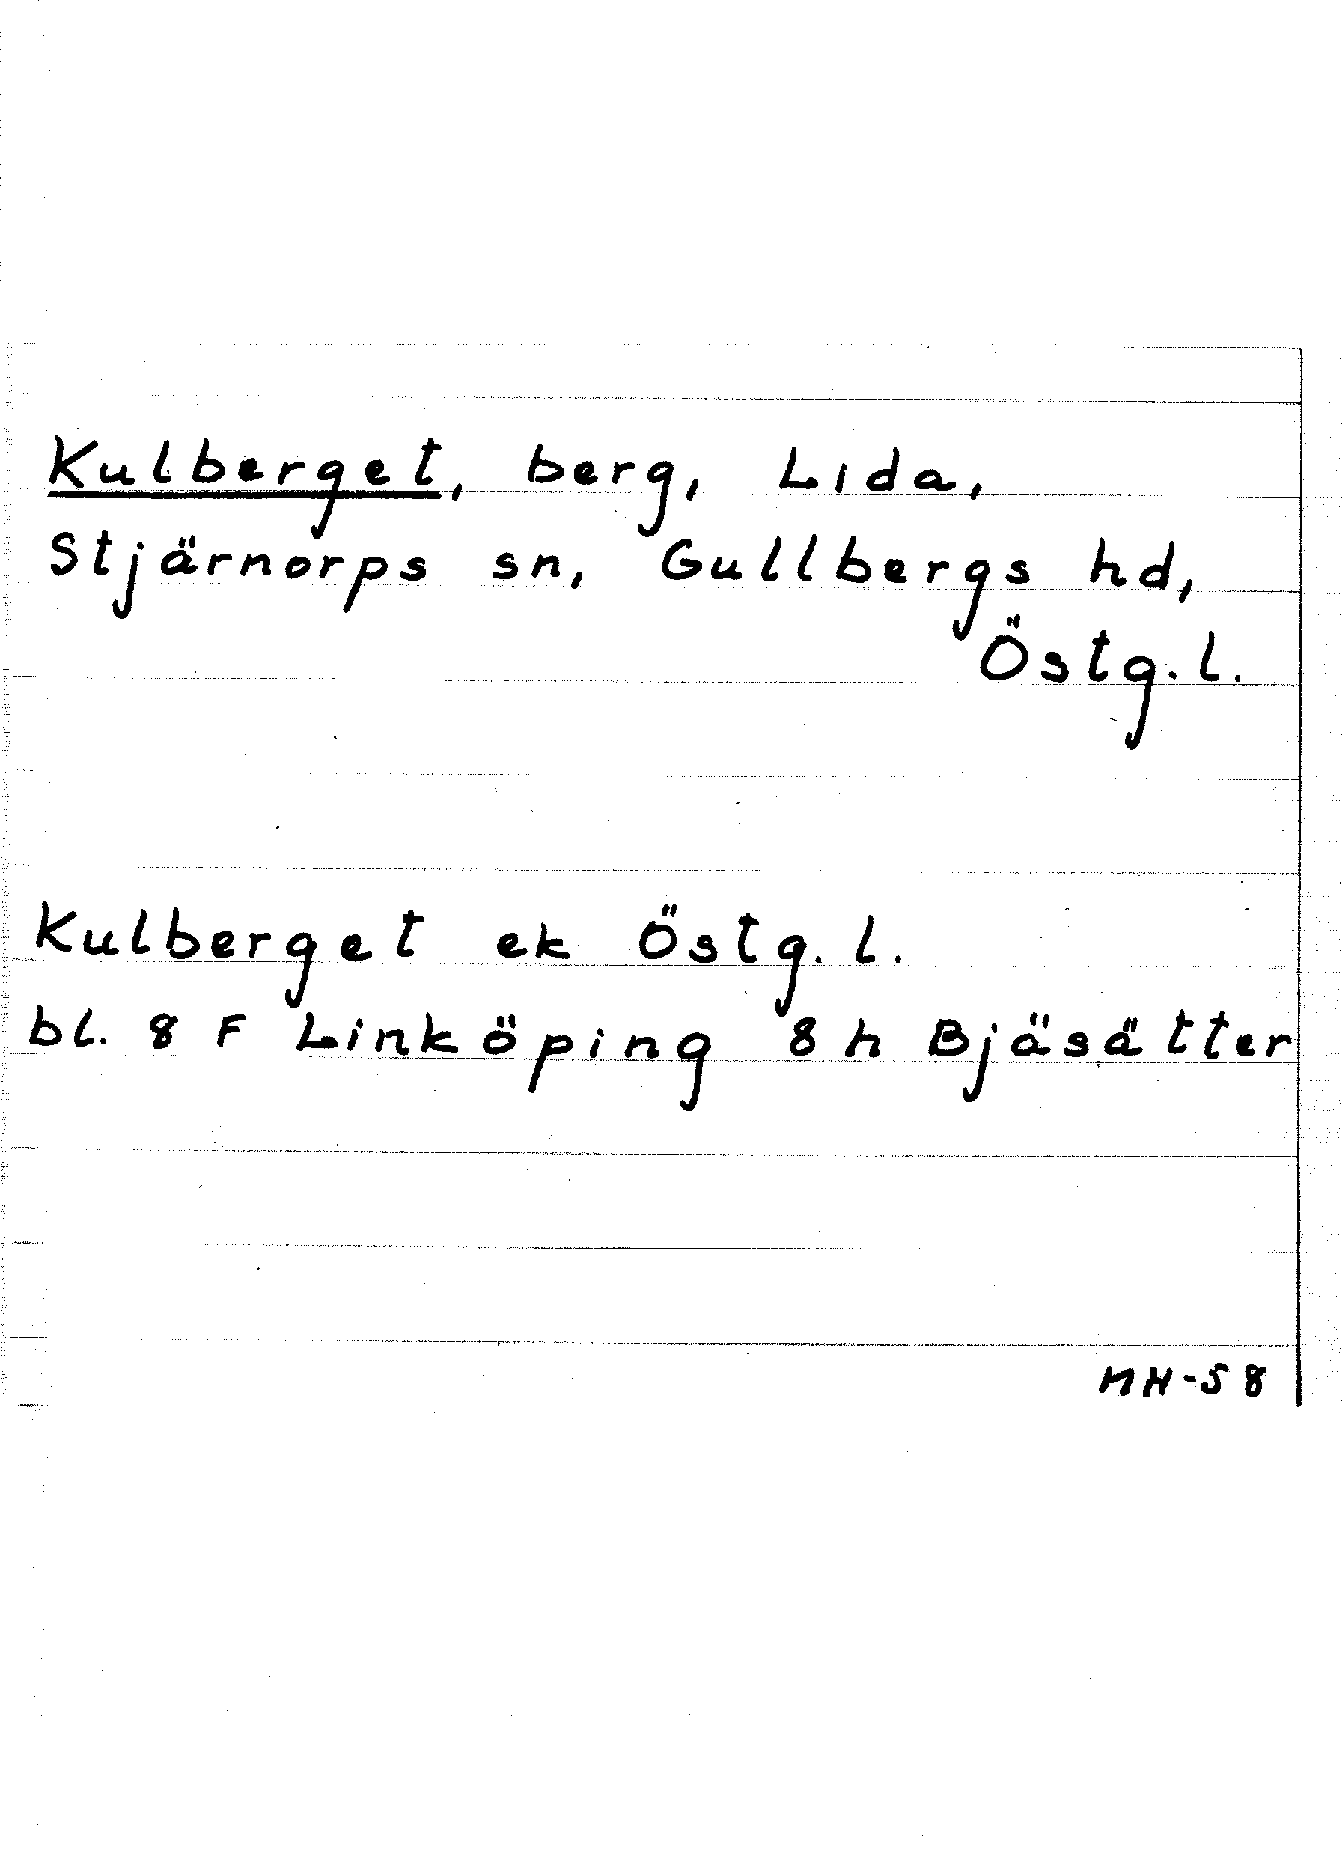 Kulberget, berg, Lida,
Stjärnorps sn, Gullbergs hd,
Östg. l.
Kulberget ek Östg. l.
bl. 8 F Linköping 8 h Bjäsätter
MH-58